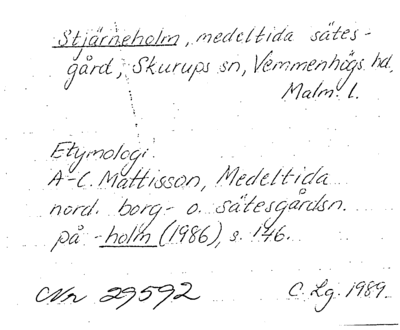 Stjärneholm, medeltida sätes-
gård, Skurups sn, Vemmenhögs hd,
Malm. l.
Etymologi.
A-C. Mattisson, Medeltida
nord. borg- o. sätesgårdsn.
på -holm (1986), s. 146.
Nr 29592 C. Lg. 1989.